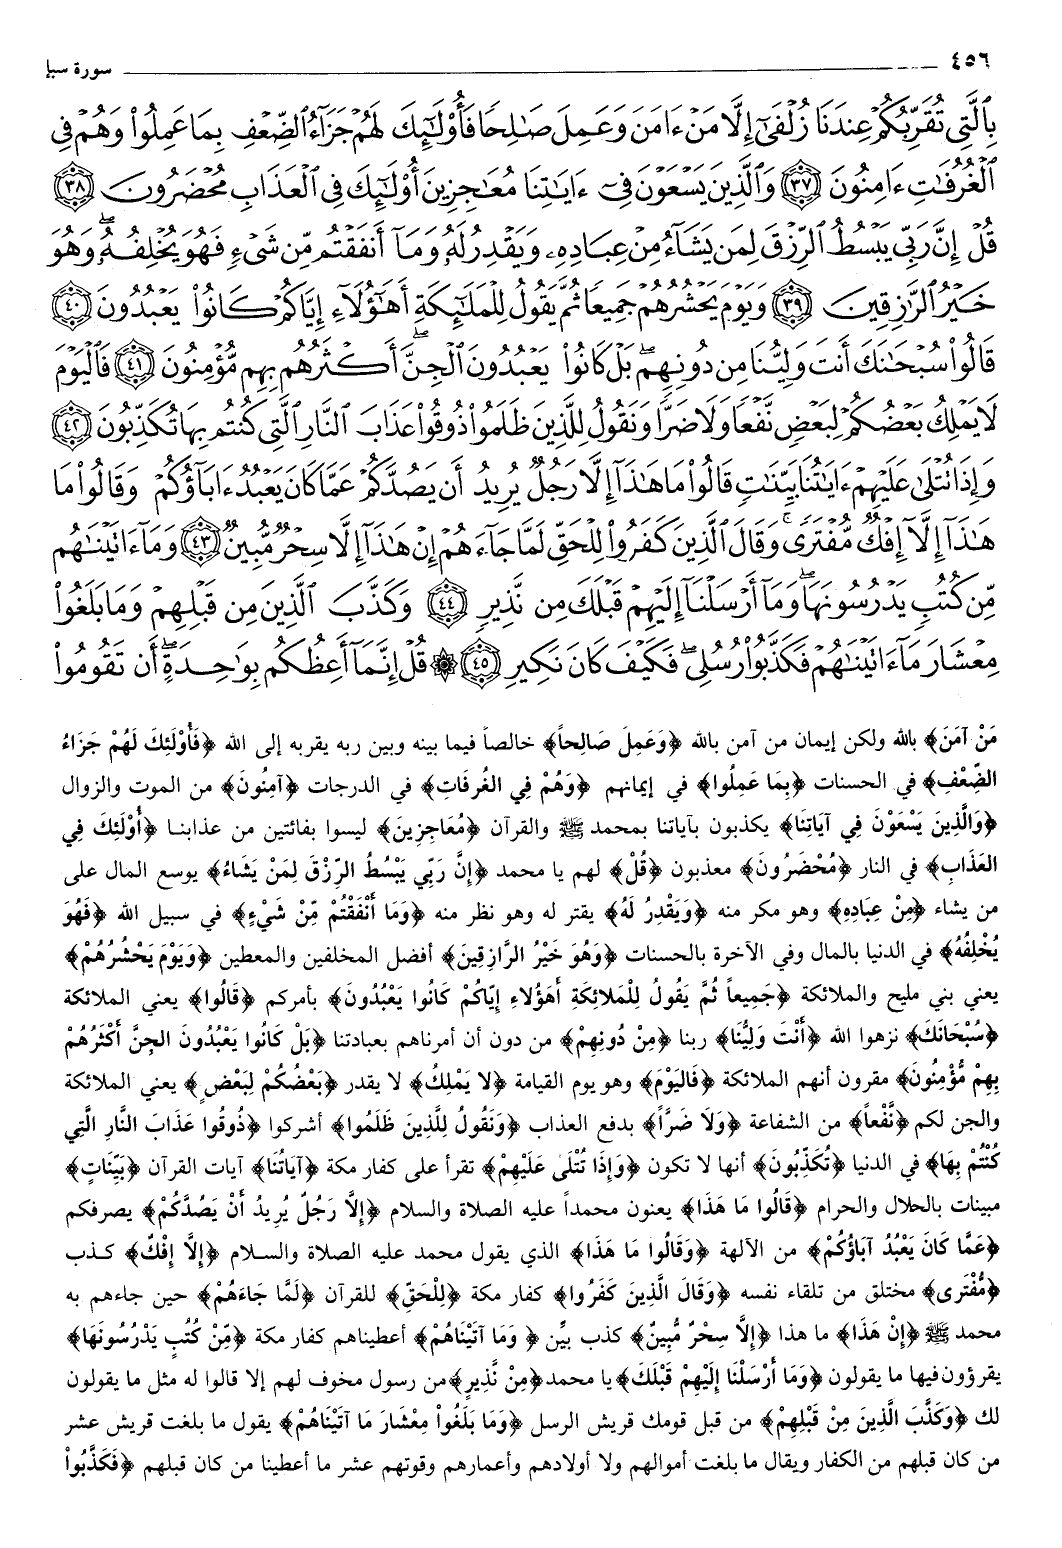 ٤٥٦ سورة سبإ
بِٱلَّتِى تُقَرِّبُكُمْ عِندَنَا زُلْفَىٰٓ إِلَّا مَنْ ءَامَنَ وَعَمِلَ صَٰلِحًا فَأُو۟لَٰٓئِكَ لَهُمْ جَزَآءُ ٱلضِّعْفِ بِمَا عَمِلُوا۟ وَهُمْ فِى
ٱلْغُرُفَٰتِ ءَامِنُونَ ﴿٣٧﴾ وَٱلَّذِينَ يَسْعَوْنَ فِىٓ ءَايَٰتِنَا مُعَٰجِزِينَ أُو۟لَٰٓئِكَ فِى ٱلْعَذَابِ مُحْضَرُونَ ﴿٣٨﴾
قُلْ إِنَّ رَبِّى يَبْسُطُ ٱلرِّزْقَ لِمَن يَشَآءُ مِنْ عِبَادِهِۦ وَيَقْدِرُ لَهُۥ وَمَآ أَنفَقْتُم مِّن شَىْءٍ فَهُوَ يُخْلِفُهُۥ وَهُوَ
خَيْرُ ٱلرَّٰزِقِينَ ﴿٣٩﴾ وَيَوْمَ يَحْشُرُهُمْ جَمِيعًا ثُمَّ يَقُولُ لِلْمَلَٰٓئِكَةِ أَهَٰٓؤُلَآءِ إِيَّاكُمْ كَانُوا۟ يَعْبُدُونَ ﴿٤٠﴾
قَالُوا۟ سُبْحَٰنَكَ أَنتَ وَلِيُّنَا مِن دُونِهِم ۖ بَلْ كَانُوا۟ يَعْبُدُونَ ٱلْجِنَّ ۖ أَكْثَرُهُم بِهِم مُّؤْمِنُونَ ﴿٤١﴾ فَٱلْيَوْمَ
لَا يَمْلِكُ بَعْضُكُمْ لِبَعْضٍ نَّفْعًا وَلَا ضَرًّا وَنَقُولُ لِلَّذِينَ ظَلَمُوا۟ ذُوقُوا۟ عَذَابَ ٱلنَّارِ ٱلَّتِى كُنتُم بِهَا تُكَذِّبُونَ ﴿٤٢﴾
وَإِذَا تُتْلَىٰ عَلَيْهِمْ ءَايَٰتُنَا بَيِّنَٰتٍ قَالُوا۟ مَا هَٰذَآ إِلَّا رَجُلٌ يُرِيدُ أَن يَصُدَّكُمْ عَمَّا كَانَ يَعْبُدُ ءَابَآؤُكُمْ وَقَالُوا۟ مَا
هَٰذَآ إِلَّآ إِفْكٌ مُّفْتَرًى ۚ وَقَالَ ٱلَّذِينَ كَفَرُوا۟ لِلْحَقِّ لَمَّا جَآءَهُمْ إِنْ هَٰذَآ إِلَّا سِحْرٌ مُّبِينٌ ﴿٤٣﴾ وَمَآ ءَاتَيْنَٰهُم
مِّن كُتُبٍ يَدْرُسُونَهَا ۖ وَمَآ أَرْسَلْنَآ إِلَيْهِمْ قَبْلَكَ مِن نَّذِيرٍ ﴿٤٤﴾ وَكَذَّبَ ٱلَّذِينَ مِن قَبْلِهِمْ وَمَا بَلَغُوا۟
مِعْشَارَ مَآ ءَاتَيْنَٰهُمْ فَكَذَّبُوا۟ رُسُلِى ۖ فَكَيْفَ كَانَ نَكِيرِ ﴿٤٥﴾ ۞ قُلْ إِنَّمَآ أَعِظُكُم بِوَٰحِدَةٍ ۖ أَن تَقُومُوا۟
مَنْ آمَنَ﴾ بالله ولكن إيمان من آمن بالله ﴿وَعَمِلَ صَالِحاً﴾ خالصاً فيما بينه وبين ربه يقربه إلى الله ﴿فَأُوْلَئِكَ لَهُمْ جَزَاءُ
الضِّعْفِ﴾ في الحسنات ﴿بِمَا عَمِلُوا﴾ في إيمانهم ﴿وَهُمْ فِي الغُرفَاتِ﴾ في الدرجات ﴿آمِنُونَ﴾ من الموت والزوال
﴿وَالَّذِينَ يَسْعَوْنَ فِي آيَاتِنَا﴾ يكذبون بآياتنا بمحمد ﷺ والقرآن ﴿مُعَاجِزِينَ﴾ ليسوا بفائتين من عذابنا ﴿أُوْلَئِكَ فِي
العَذَابِ﴾ في النار ﴿مُحْضَرُونَ﴾ معذبون ﴿قُلْ﴾ لهم يا محمد ﴿إِنَّ رَبِّي يَبْسُطُ الرِّزْقَ لِمَنْ يَشَاءُ﴾ يوسع المال على
من يشاء ﴿مِنْ عِبَادِهِ﴾ وهو مكر منه ﴿وَيَقْدِرُ لَهُ﴾ يقتر له وهو نظر منه ﴿وَمَا أَنْفَقْتُمْ مِّنْ شَيْءٍ﴾ في سبيل الله ﴿فَهُوَ
يُخْلِفُهُ﴾ في الدنيا بالمال وفي الآخرة بالحسنات ﴿وَهُوَ خَيْرُ الرَّازِقِينَ﴾ أفضل المخلفين والمعطين ﴿وَيَوْمَ يَحْشُرُهُمْ﴾
يعني بني مليح والملائكة ﴿جَمِيعاً ثُمَّ يَقُولُ لِلْمَلَائِكَةِ أَهَؤُلَاءِ إِيَّاكُمْ كَانُوا يَعْبُدُونَ﴾ بأمركم ﴿قَالُوا﴾ يعني الملائكة
﴿سُبْحَانَكَ﴾ نزهوا الله ﴿أَنْتَ وَلِيُّنَا﴾ ربنا ﴿مِنْ دُونِهِمْ﴾ من دون أن أمرناهم بعبادتنا ﴿بَلْ كَانُوا يَعْبُدُونَ الجِنَّ أَكْثَرُهُمْ
بِهِمْ مُّؤْمِنُونَ﴾ مقرون أنهم الملائكة ﴿فَاليَوْمَ﴾ وهو يوم القيامة ﴿لا يَمْلِكُ﴾ لا يقدر ﴿بَعْضُكُمْ لِبَعْضٍ﴾ يعني الملائكة
والجن لكم ﴿نَّفْعاً﴾ من الشفاعة ﴿وَلَا ضَرّاً﴾ بدفع العذاب ﴿وَنَقُولُ لِلَّذِينَ ظَلَمُوا﴾ أشركوا ﴿ذُوقُوا عَذَابَ النَّارِ الَّتِي
كُنْتُمْ بِهَا﴾ في الدنيا ﴿تُكَذِّبُونَ﴾ أنها لا تكون ﴿وَإِذَا تُتْلَى عَلَيْهِمْ﴾ تقرأ على كفار مكة ﴿آيَاتُنَا﴾ آيات القرآن ﴿بَيِّنَاتٍ﴾
مبينات بالحلال والحرام ﴿قَالُوا مَا هَذَا﴾ يعنون محمداً عليه الصلاة والسلام ﴿إِلَّا رَجُلٌ يُرِيدُ أَنْ يَصُدَّكُمْ﴾ يصرفكم
﴿عَمَّا كَانَ يَعْبُدُ آبَاؤُكُمْ﴾ من الآلهة ﴿وَقَالُوا مَا هَذَا﴾ الذي يقول محمد عليه الصلاة والسلام ﴿إِلَّا إِفْكٌ﴾ كذب
﴿مُفْتَرى﴾ مختلق من تلقاء نفسه ﴿وَقَالَ الَّذِينَ كَفَرُوا﴾ كفار مكة ﴿لِلْحَقِّ﴾ للقرآن ﴿لَمَّا جَاءَهُمْ﴾ حين جاءهم به
محمد ﷺ ﴿إِنْ هَذَا﴾ ما هذا ﴿إِلَّا سِحْرٌ مُّبِينٌ﴾ كذب بيِّن ﴿وَمَا آتَيْنَاهُمْ﴾ أعطيناهم كفار مكة ﴿مِّنْ كُتُبٍ يَدْرُسُونَهَا﴾
يقرؤون فيها ما يقولون ﴿وَمَا أَرْسَلْنَا إِلَيْهِمْ قَبْلَكَ﴾ يا محمد ﴿مِنْ نَّذِيرٍ﴾ من رسول مخوف لهم إلا قالوا له مثل ما يقولون
لك ﴿وَكَذَّبَ الَّذِينَ مِنْ قَبْلِهِمْ﴾ من قبل قومك قريش الرسل ﴿وَمَا بَلَغُواْ مِعْشَارَ مَا آتَيْنَاهُمْ﴾ يقول ما بلغت قريش عشر
من كان قبلهم من الكفار ويقال ما بلغت أموالهم ولا أولادهم وأعمارهم وقوتهم عشر ما أعطينا من كان قبلهم ﴿فَكَذَّبُواْ